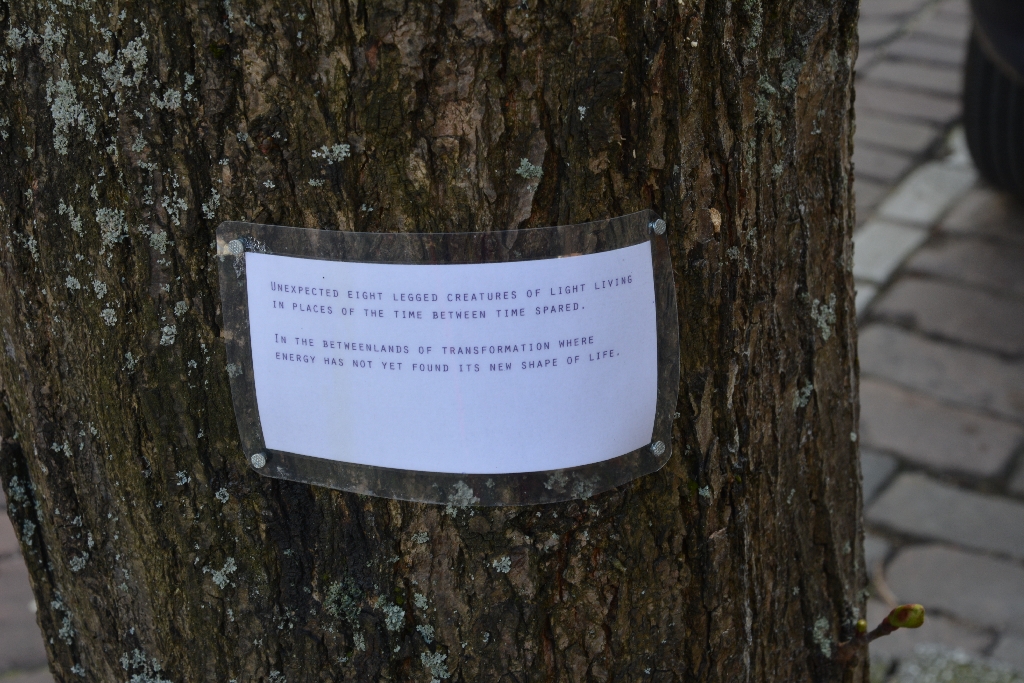 UNEXPECTED EIGHT LEGGED CREATURES OF LIGHT LIVING
IN PLACES OF THE TIME BETWEEN TIME SPARED.
IN THE BETWEENLANDS OF TRANSFORMATION WHERE
ENERGY HAS NOT YET FOUND ITS NEW SHAPE OF LIFE.